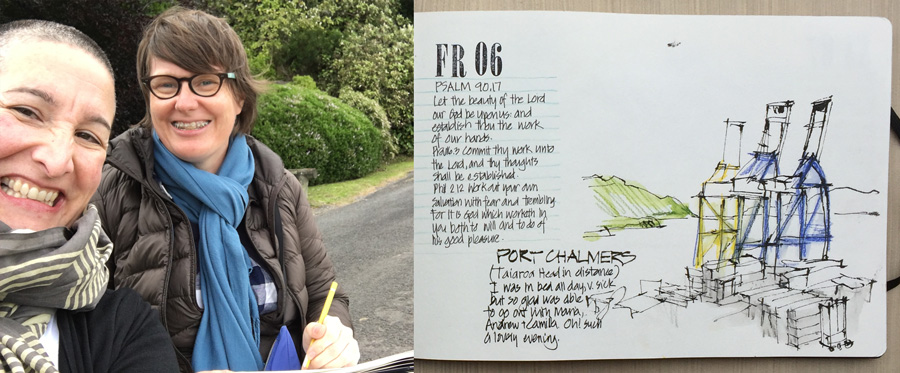 FR 06
PSALM 90.17
Let the beauty of the Lord
our God be upon us: and
establish thou the work
of our hands.
Commit thy work unto
the Lord, and thy thoughts
shall be established.
Phil 2.12 Work out your own
salvation with fear and trembling.
For it is God which worketh in
you both to will and to do of
his good pleasure.
PORT CHALMERS
(Taiaroa Head in distance)
I was in bed all day, v. sick
but so glad was able
to go out with Maria,
Andrew + Camilla. Oh! such
a lovely evening.